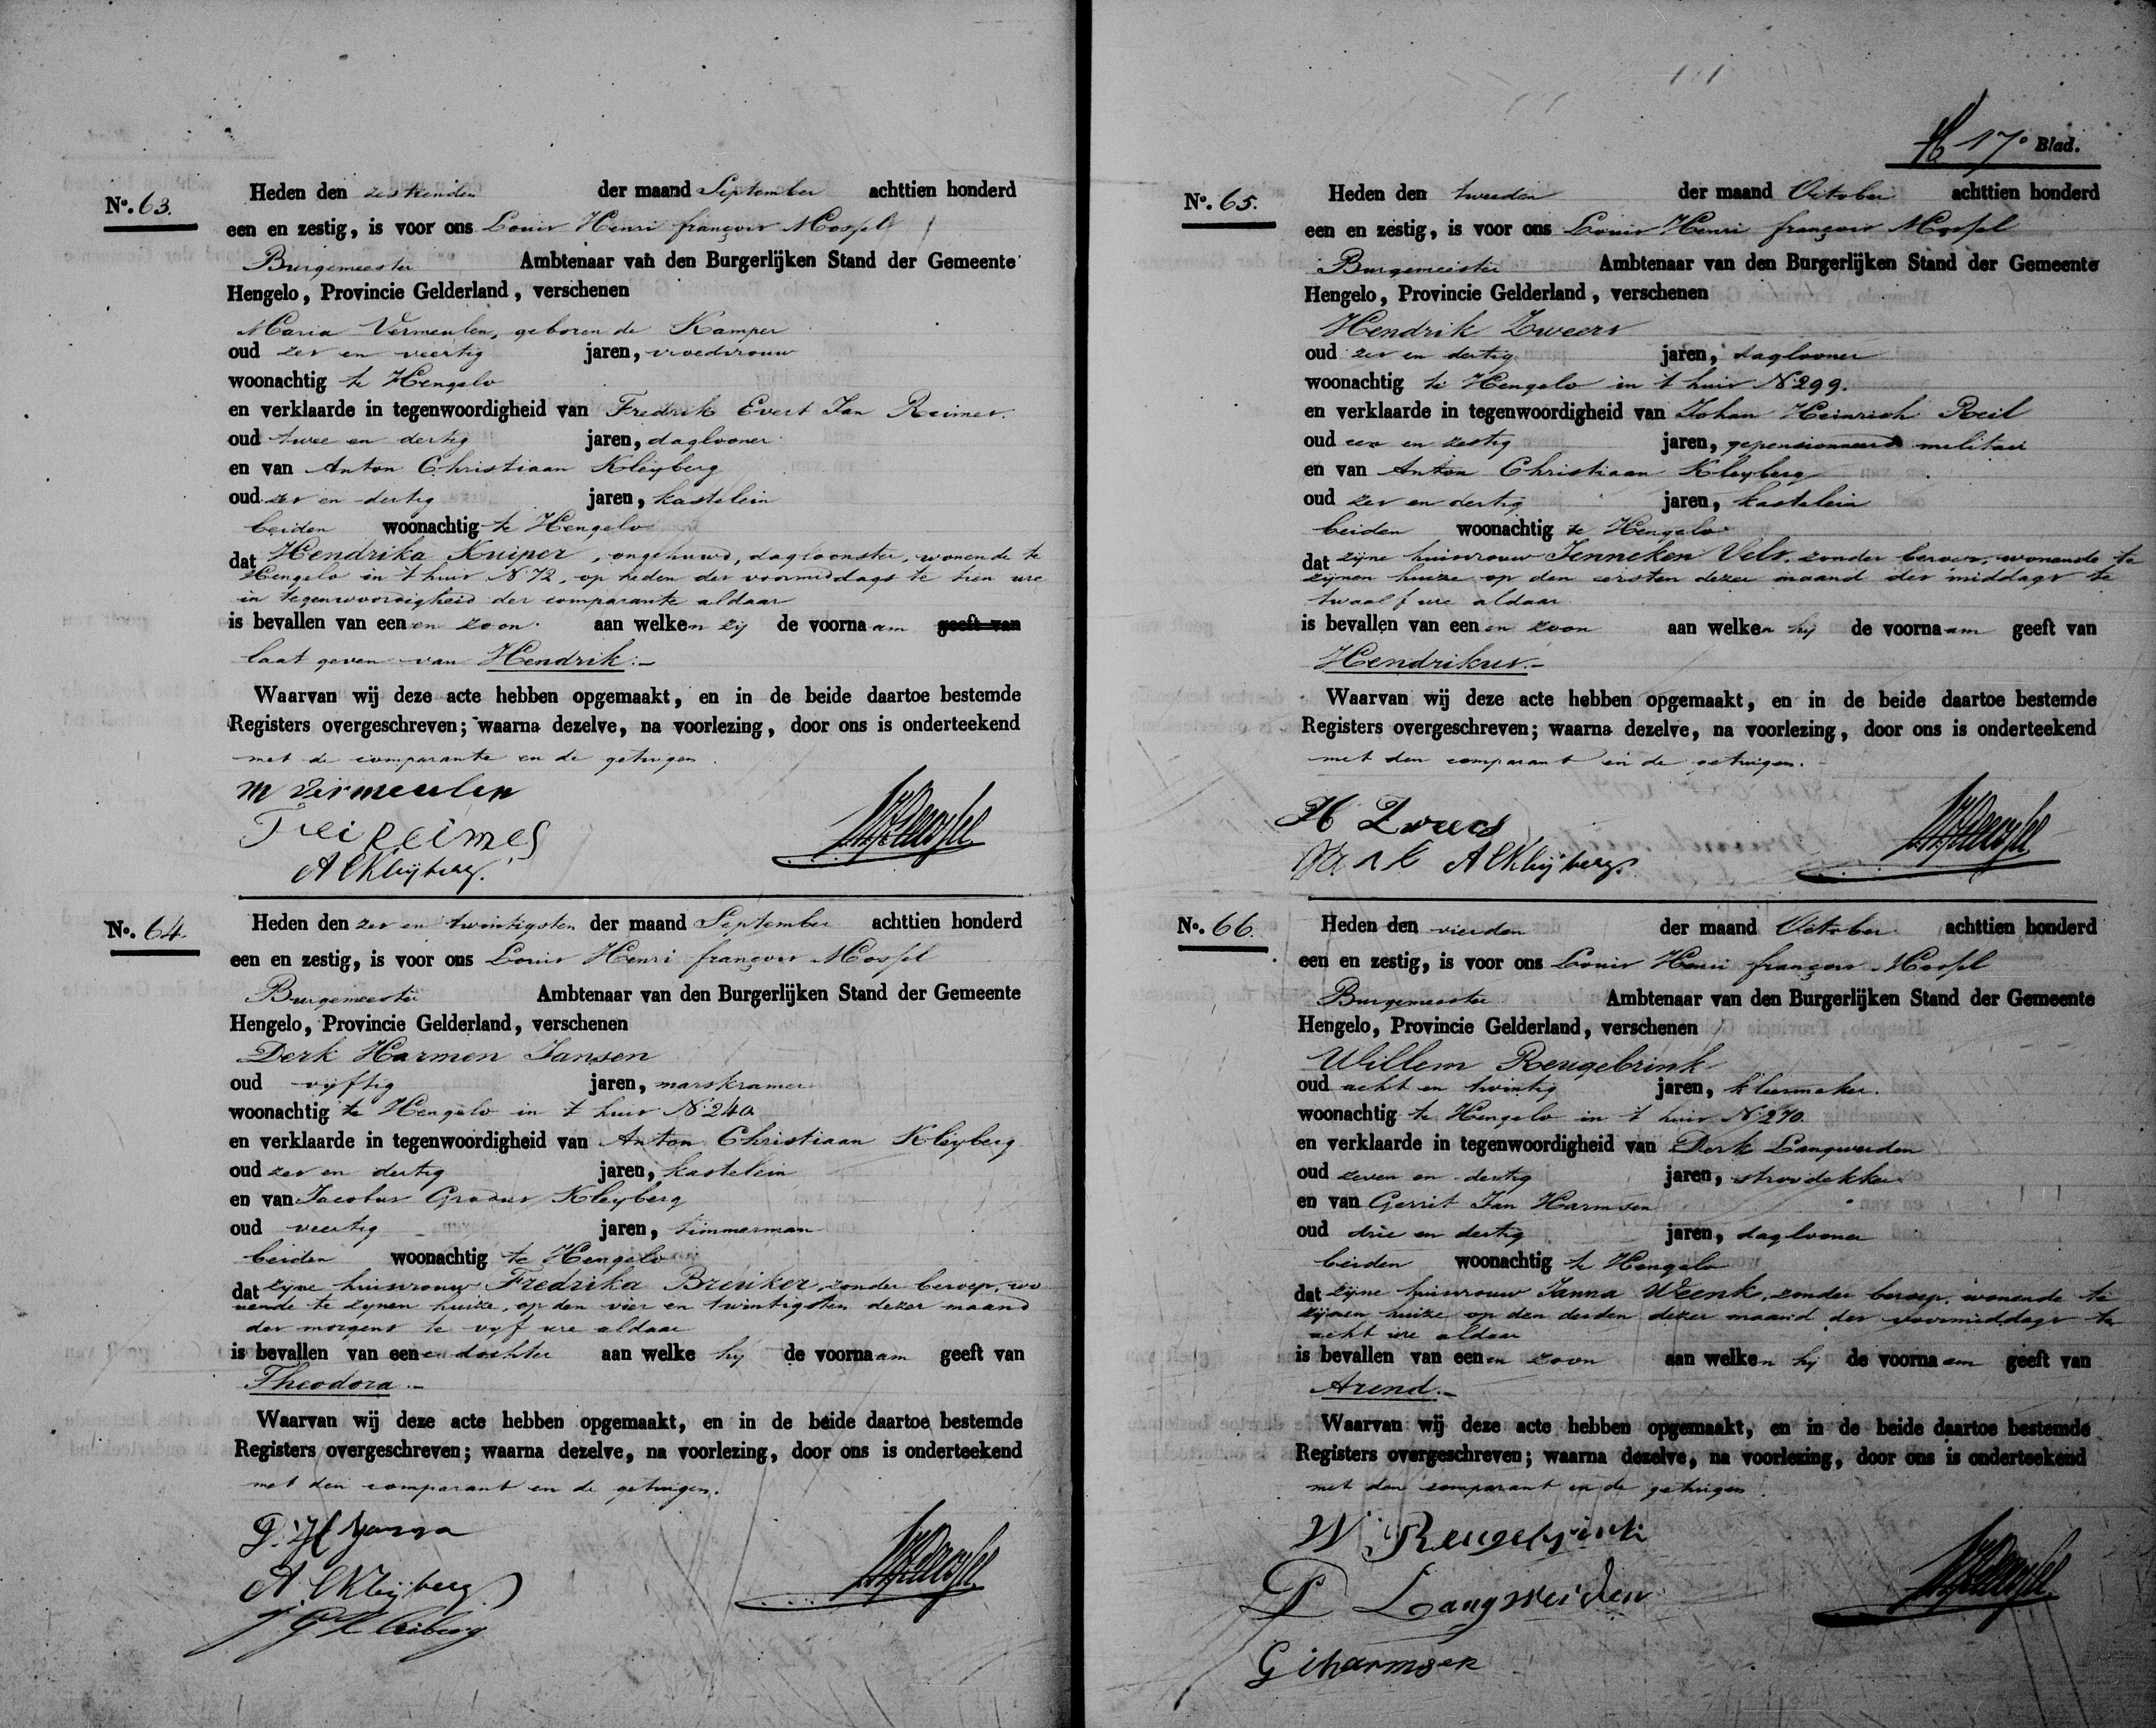 No. 63.
Heden den zestienden der maand September achttien honderd
een en zestig, is voor ons Louis Henri françois Mossel
Burgemeester Ambtenaar van den Burgerlijken Stand der Gemeente
Hengelo, Provincie Gelderland, verschenen
Maria Vermeulen, geboren de Kamper
oud zes en veertig jaren, vroedvrouw
woonachtig te Hengelo
en verklaarde in tegenwoordigheid van Fredrik Evert Jan Reimes.
oud twee en dertig jaren, daglooner
en van Anton Christiaan Kleyberg
oud zes en dertig jaren, kastelein
beiden woonachtig te Hengelo
dat Hendrika Kuiper, ongehuwd, dagloonster, wonende te
Hengelo in 't huis No 72, op heden des voormiddags te tien ure
in tegenwoordigheid der comparante aldaar
is bevallen van eenen zoon aan welken zij de voornaam geeft van
laat geven van Hendrik.-
Waarvan wij deze acte hebben opgemaakt, en in de beide daartoe bestemde
Registers overgeschreven; waarna dezelve, na voorlezing, door ons is onderteekend
met de comparante en de getuigen.
M Vermeulen
Reimes
A C Kleyberg.
No. 64.
Heden den zes en twintigsten der maand September achttien honderd
een en zestig, is voor ons Louis Henri françois Mossel
Burgemeester Ambtenaar van den Burgerlijken Stand der Gemeente
Hengelo, Provincie Gelderland, verschenen
Derk Harmen Jansen
oud vijftig jaren, marskramer
woonachtig te Hengelo in 't huis No 240
en verklaarde in tegenwoordigheid van Anton Christiaan Kleyberg
oud zes en dertig jaren, kastelein
en van Jacobus Gradus Kleyberg
oud veertig jaren, timmerman
beiden woonachtig te Hengelo
dat zijne huisvrouw Fredrika Breuker, zonder beroep, wo
nende te zijnen huize, op den vier en twintigsten dezer maand
des morgens te vijf ure aldaar
is bevallen van eene dochter aan welke hij de voornaam geeft van
Theodora.-
Waarvan wij deze acte hebben opgemaakt, en in de beide daartoe bestemde
Registers overgeschreven; waarna dezelve, na voorlezing, door ons is onderteekend
met den comparant en de getuigen.
D. H Jansen
A. C Kleyberg
J G Kleiberg
17e Blad.
No. 65.
Heden den tweeden der maand October achttien honderd
een en zestig, is voor ons Louis Henri françois Mossel
Burgemeester Ambtenaar van den Burgerlijken Stand der Gemeente
Hengelo, Provincie Gelderland, verschenen
Hendrik Zweers
oud zes en dertig jaren, daglooner
woonachtig te Hengelo in 't huis No 299.
en verklaarde in tegenwoordigheid van Johan Heinrich Reil
oud een en zestig jaren, gepensionneerd militair
en van Anton Christiaan Kleyberg
oud zes en dertig jaren, kastelein
beiden woonachtig te Hengelo
dat zijne huisvrouw Jenneken Vels, zonder beroep, wonende te
zijnen huize op den eersten dezer maand des middags te
twaalf ure aldaar
is bevallen van eenen zoon aan welken hij de voornaam geeft van
Hendrikus.-
Waarvan wij deze acte hebben opgemaakt, en in de beide daartoe bestemde
Registers overgeschreven; waarna dezelve, na voorlezing, door ons is onderteekend
met den comparant en de getuigen.
H Zweers
A C Kleyberg.
No. 66.
Heden den vierden der maand October achttien honderd
een en zestig, is voor ons Louis Henri françois Mossel
Burgemeester Ambtenaar van den Burgerlijken Stand der Gemeente
Hengelo, Provincie Gelderland, verschenen
Willem Reugebrink
oud acht en twintig jaren, kleermaker.
woonachtig te Hengelo in 't huis No 270.
en verklaarde in tegenwoordigheid van Derk Langwerden
oud zeven en dertig jaren, stroodekker
en van Gerrit Jan Harmsen
oud drie en dertig jaren, daglooner
beiden woonachtig te Hengelo
dat zijne huisvrouw Janna Weenk, zonder beroep, wonende te
zijnen huize op den derden dezer maand des voormiddags te
acht ure aldaar
is bevallen van eenen zoon aan welken hij de voornaam geeft van
Arend.-
Waarvan wij deze acte hebben opgemaakt, en in de beide daartoe bestemde
Registers overgeschreven; waarna dezelve, na voorlezing, door ons is onderteekend
met den comparant en de getuigen.
W Reugebrink
D Langwerden
G J harmsen